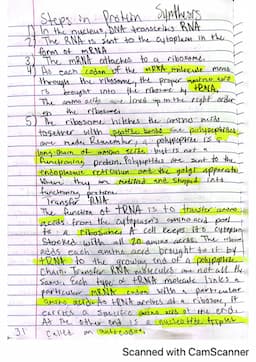 Steps in Protein Synthesis
1) In the nucleus, DNA transcribes RNA
2) The RNA is sent to the cytoplasm in the
form of mRNA
3) The mRNA attaches to a ribosome.
4) As each codon of the mRNA molecule moves
through the ribosome, the proper amino acid
is brought into the ribosome by tRNA.
The amino acids are lined up in the right order
on the ribosome
5) The ribosome hitches the amino acids
together with peptide bonds and polypeptides
are made. Remember a polypeptide is a
long chain of amino acids but is not a
functioning protein. Polypeptides are sent to the
endoplasmic reticulum and the golgi apparatus
where they are modified and shaped into
functioning proteins.
Transfer RNA
The function of tRNA is to transfer amino
acids from the cytoplasm's amino acid pool
to a ribosome. A cell keeps its cytoplasm
stocked with all 20 amino acids. The ribosome
adds each amino acid brought to it by
tRNA to the growing end of a polypeptide
chain. Transfer RNA molecules are not all the
same. Each type of tRNA molecule links a
particular mRNA codon with a particular
amino acid. As tRNA arrives at a ribosome, it
carries a specific amino acid at one end.
At the other end is a nucleotide triplet
called an anticodon.
31
Scanned with CamScanner